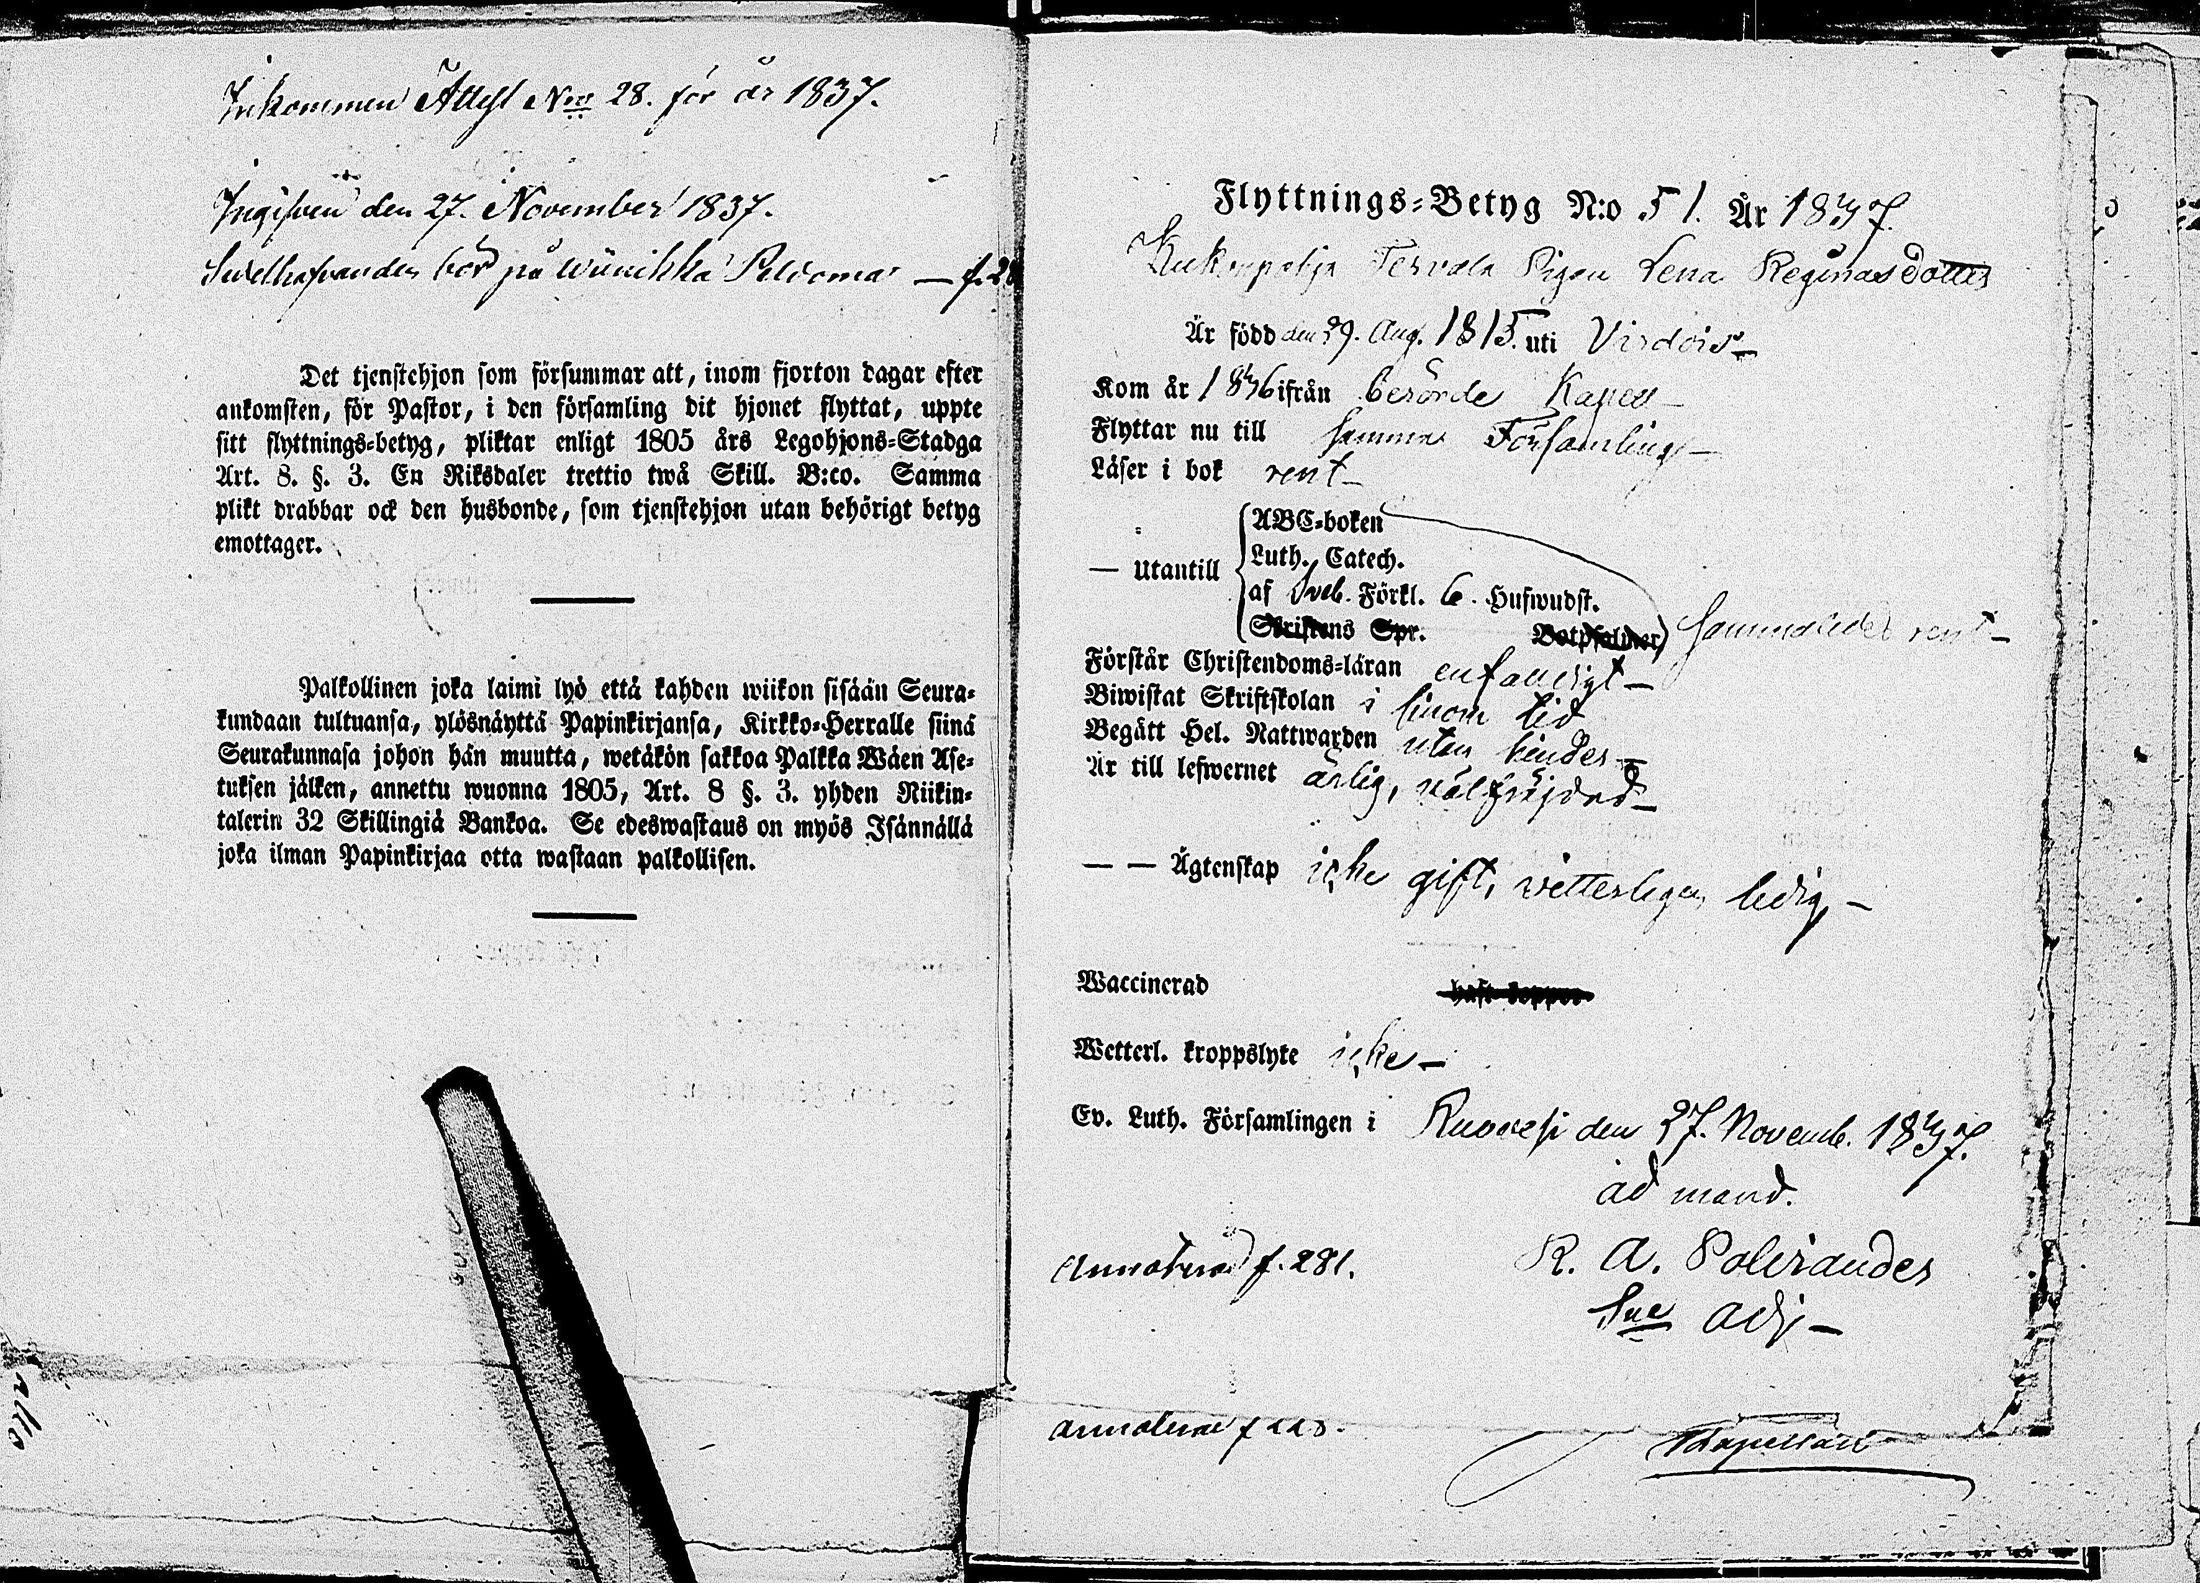 Inkommen Attest Nro 28. för år 1837.
Ingifven den 27. November 1837.
bör på Peldoma — f. 28
Det tjenstehjon som försummar att, inom fjorton dagar efter
ankomsten, för Pastor, i den församling dit hjonet flyttat, uppte
sitt flyttnings=betyg, pliktar enligt 1805 års Legohjons=Stadga
Art. 8. §. 3. En Riksdaler trettio twå Skill. B:co. Samma
plikt drabbar ock den husbonde, som tjenstehjon utan behörigt betyg
emottager.
Palkollinen joka laimi lyö että kahden wiikon sisään Seura=
kundaan tultuansa, ylösnäyttä Papinkirjansa, Kirkko=Herralle siinä
Seurakunnasa johon hän muutta, wetäkön sakkoa Palkka Wäen Ase=
tuksen jälken, annettu wuonna 1805, Art. 8 §. 3. yhden Riikin=
talerin 32 Skillingiä Bankoa. Se edeswastaus on myös Isännällä
joka ilman Papinkirjaa otta wastaan palkollisen.
Flyttnings=Betyg N:o 51. År 1837.
Tervala Pigan Lena Reginasdotter
Är född den 29. Aug. 1815. uti Virdois —
Kom år 1836 ifrån berörde Kapell —
Flyttar nu till samma Församling —
Läser i bok rent —
— Utantill
ABC=boken
Luth. Catech.
af Sveb. Förkl. 6. Hufwudst.
Skriftens Spr. Botpsalmer) sammaledes rent —
Förstår Christendoms=läran enfaldigt —
Biwistat Skriftskolan i sinom tid
Begått Hel. Nattwarden utan hinder —
Är till lefwernet ärlig, välfrejdad —
— — Ägtenskap icke gift, vetterligen ledig, —
Waccinerad haft koppor
Wetterl. kroppslyte icke —
Ev. Luth. Församlingen i Ruovesi den 27. Novemb. 1837.
ad mand.
R. A. Polviander
Sac adj —
Annoterad f. 281.
annoterad f
Kapellan